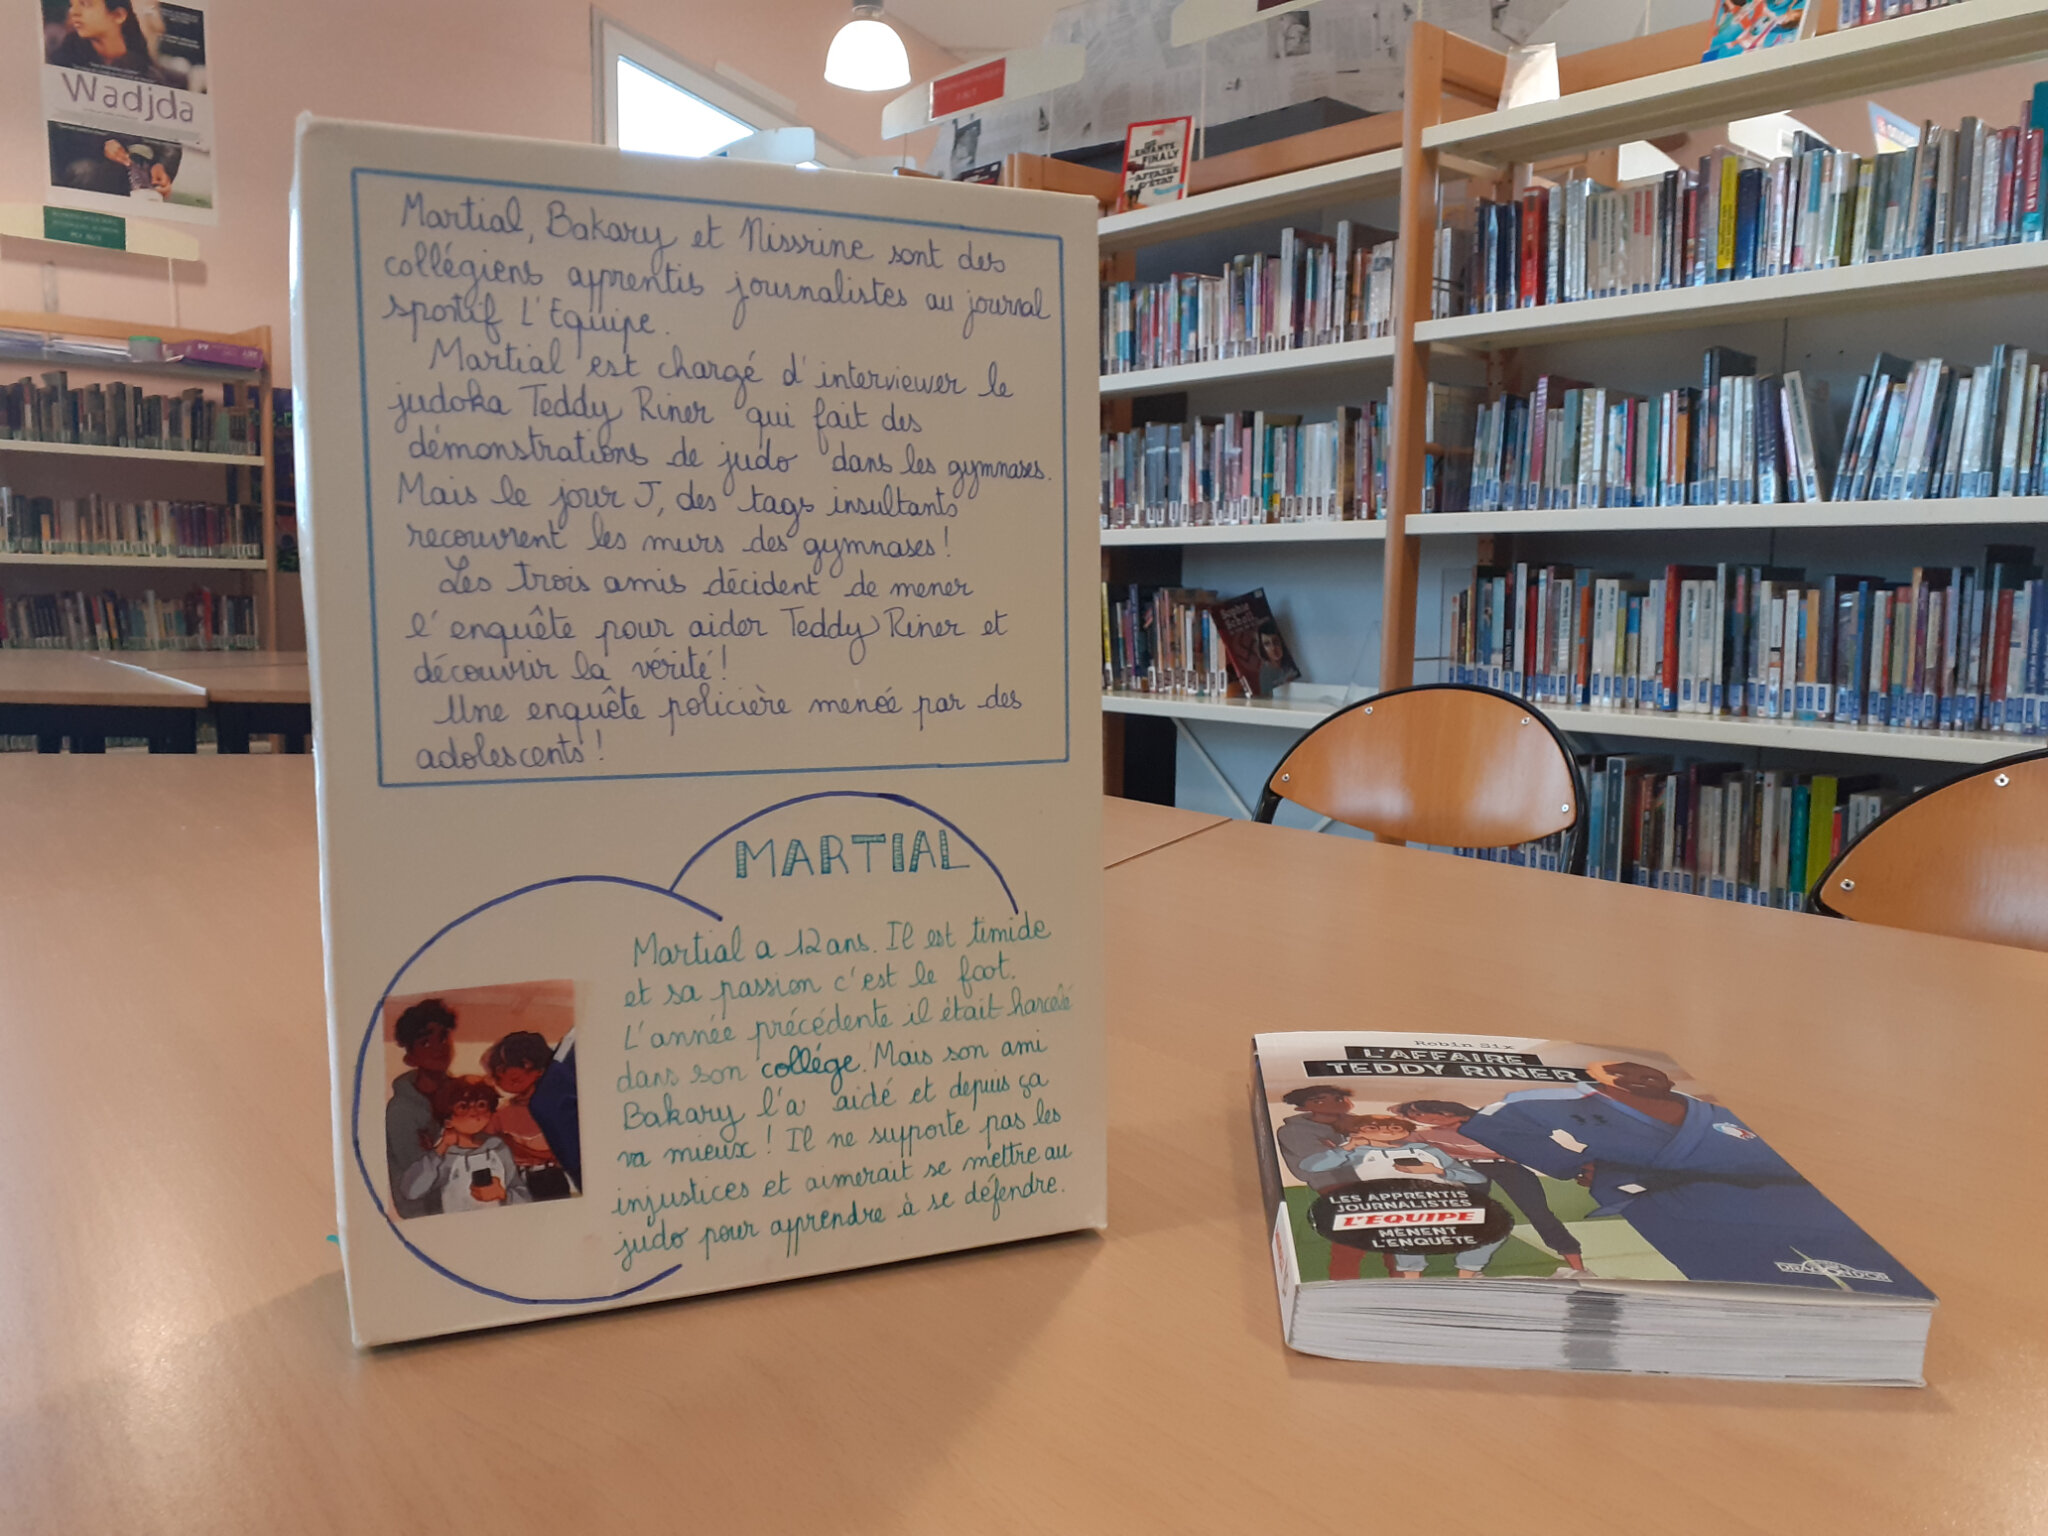 Wadjda
Martial, Bakary et Nissrine sont des
collégiens apprentis journalistes au journal
sportif L'Equipe.
Martial est chargé d'interviewer le
judoka Teddy Riner qui fait des
démonstrations de judo dans les gymnases.
Mais le jour J, des tags insultants
recouvrent les murs des gymnases !
Les trois amis décident de mener
l'enquête pour aider Teddy Riner et
découvrir la vérité !
Une enquête policière menée par des
adolescents !
MARTIAL
Martial a 12 ans. Il est timide
et sa passion c'est le foot.
L'année précédente il était harcelé
dans son collège. Mais son ami
Bakary l'a aidé et depuis ça
va mieux ! Il ne supporte pas les
injustices et aimerait se mettre au
judo pour apprendre à se défendre.
LES
ENFANTS
FINALY
AFFAIRE
D'ÉTAT
Sophie
Scholl
Robin Six
L'AFFAIRE
TEDDY RINER
LES APPRENTIS
JOURNALISTES
L'EQUIPE
MÈNENT
L'ENQUÊTE